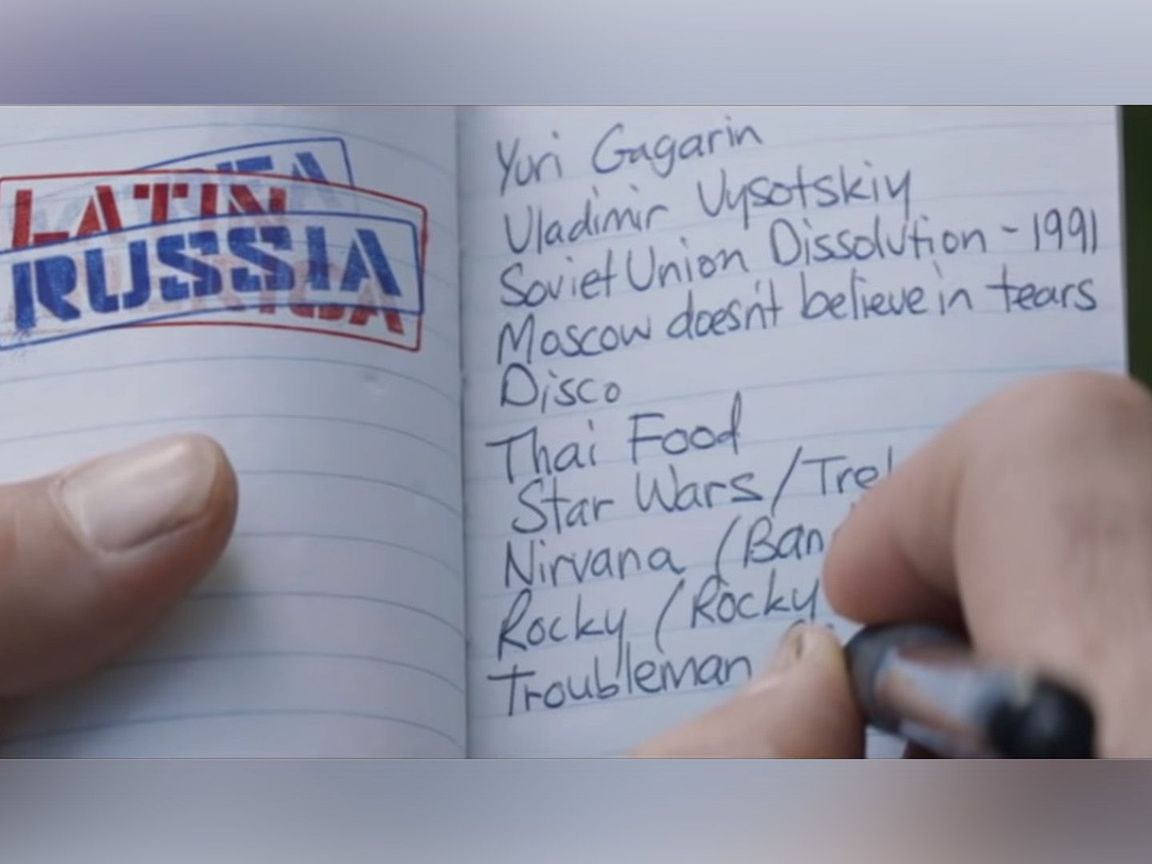 LATIN
RUSSIA
Yuri Gagarin
Vladimir Vysotskiy
Soviet Union Dissolution - 1991
Moscow doesn't believe in tears
Disco
Thai Food
Star Wars/
Nirvana
Rocky (Rocky
Troubleman